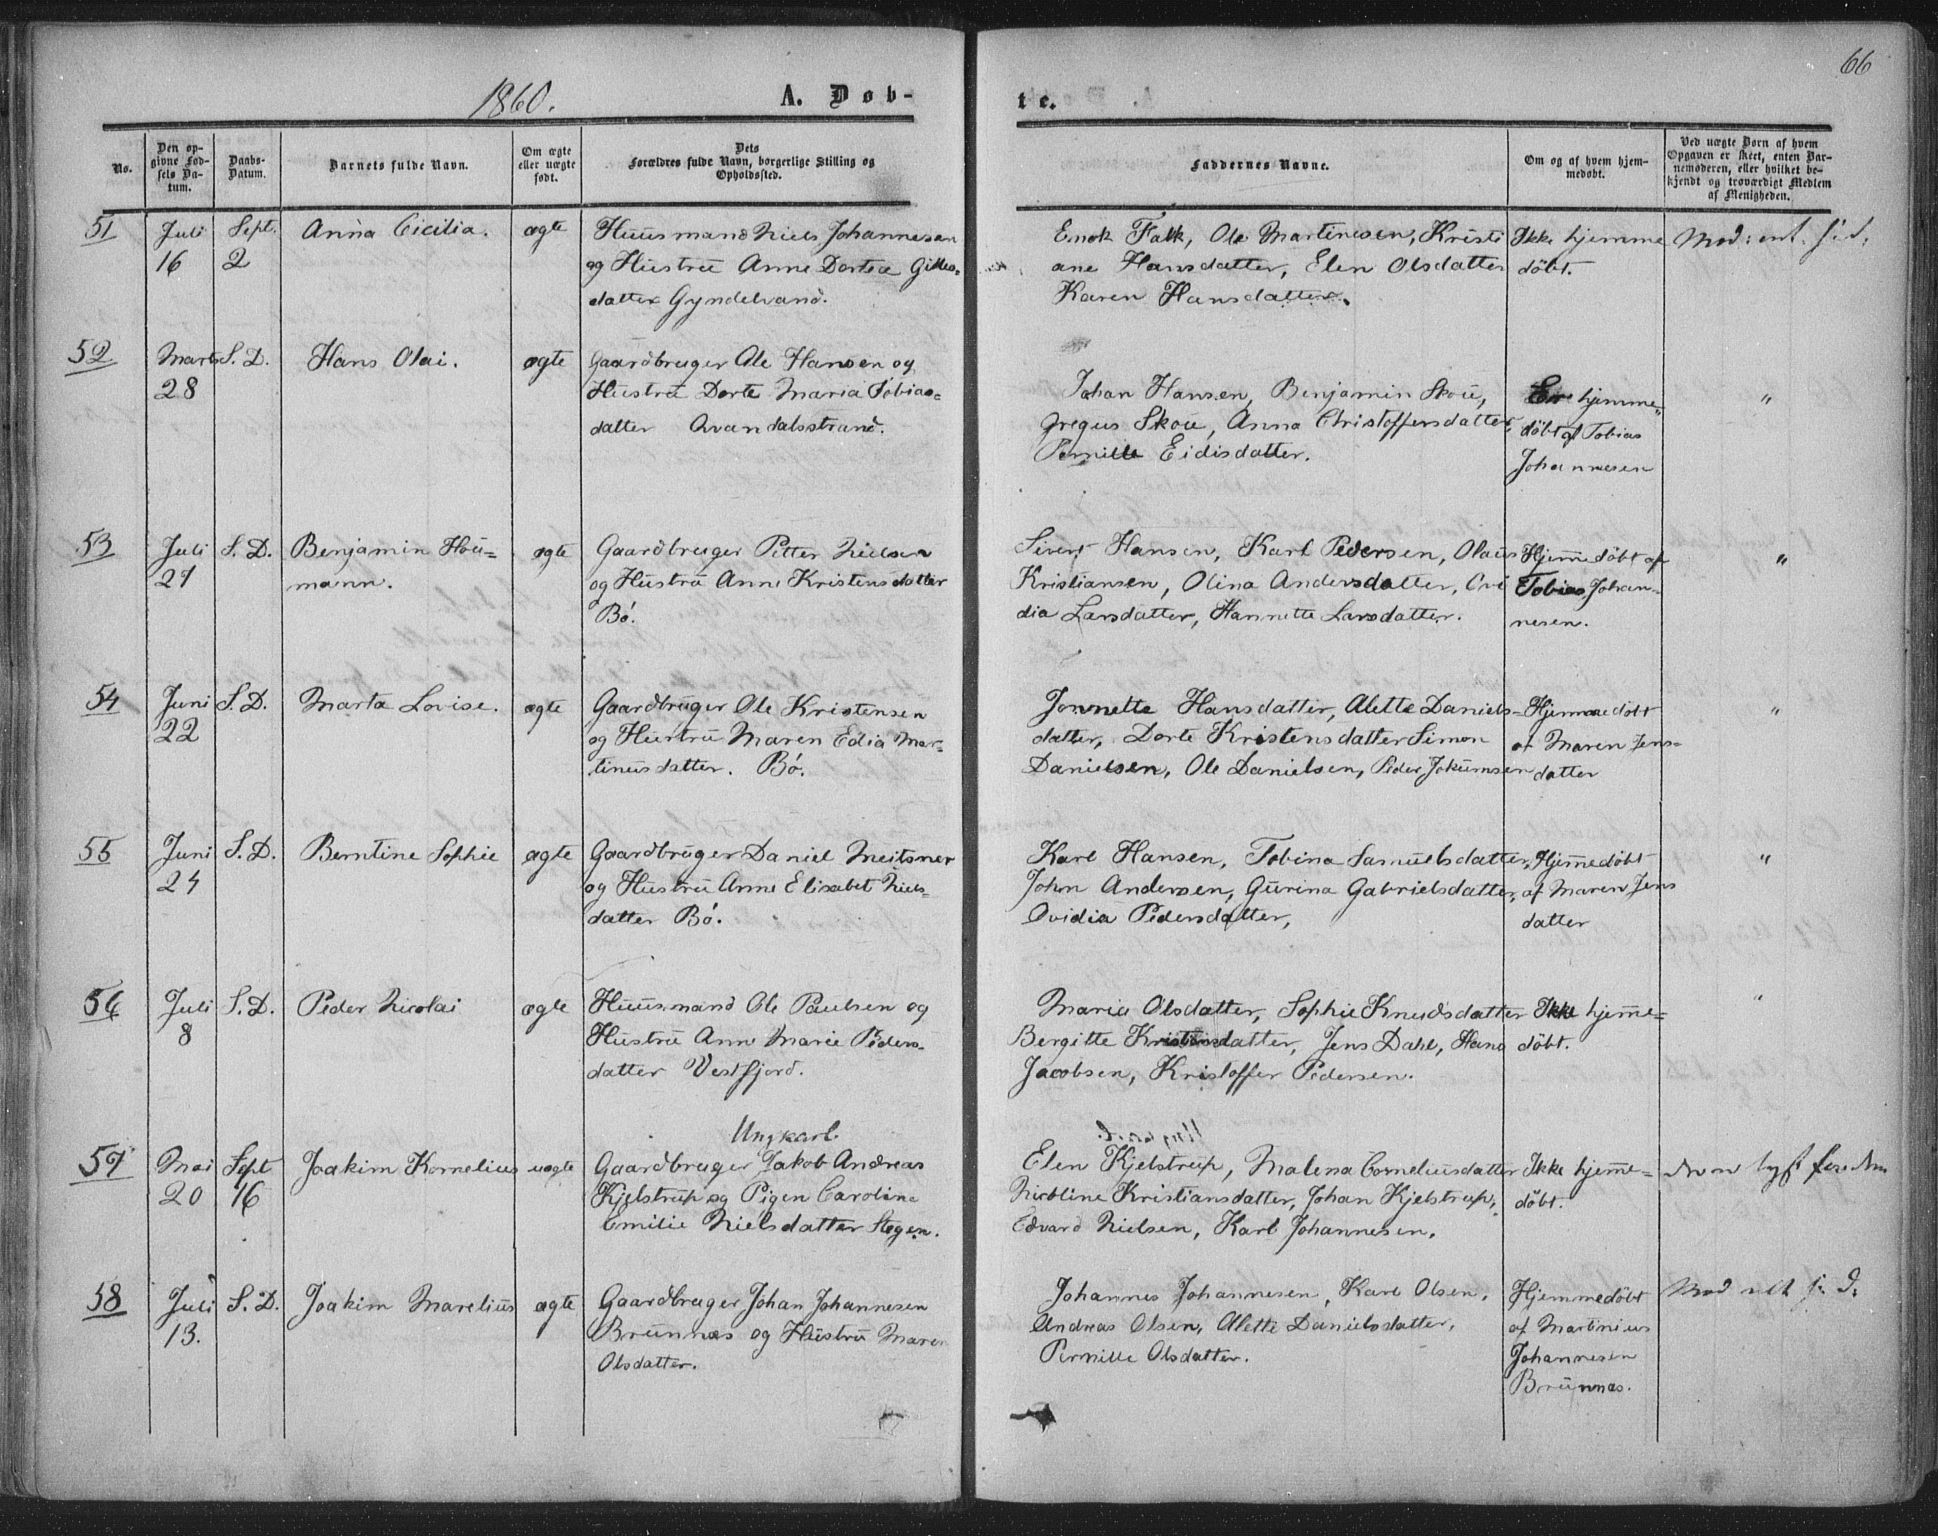 66
1860.
A. Døb-
te.
No.
Den op-
givne Fød-
sels Da-
tum.
Daabs-
Datum.
Barnets fulde Navn.
Om ægte
eller uægte
født.
Dets
Forældres fulde Navn, borgerlige Stilling og
Opholdssted.
Faddernes Navne.
Om og af hvem hjem-
medøbt.
Ved uægte Børn af hvem
Opgaven er skeet, enten Bar-
nemoderen, eller hvilket be-
kjendt og troværdigt Medlem
af Menigheden.
51
Juli
16
Sept.
2
Anna Cicilia.
ægte
Huusmand Niels Johannesen
og Hustru Anne Dortea
datter Gyndelvand.
Enok Falk, Ole Martinesen, Kristi
ane Hansdatter, Elen Olsdatter
Karen Hansdatter.
Ikke hjemme
døbt.
52
Marts
28
S. D.
Hans Olai.
ægte
Gaardbruger Ole Hansen og
Hustru Dorte Maria Tobias-
datter Qvandalsstrand.
Johan Hansen, Benjamin Skou,
Gregus Skou, Anna Christoffersdatter,
Pernille Eidisdatter.
hjemme-
døbt af Tobias
Johannesen
"
53
Juli
27
S. D.
Benjamin Hou-
mann.
ægte
Gaardbruger Petter Nielsen
og Hustru Anne Kristensdatter
Bø.
Sivert Hansen, Karl Pedersen, Olaus
Kristiansen, Olina Andersdatter, Ovi
dia Larsdatter, Hannette Larsdatter.
Hjemmedøbt af
Tobias Johan-
nesen.
"
54
Juni
22
S. D.
Marta Lovise.
ægte
Gaardbruger Ole Kristensen
og Hustru Maren Edia Mar-
tinusdatter. Bø.
Jonnette Hansdatter, Alette Daniels-
datter, Dorte Kristensdatter Simon
Danielsen, Ole Danielsen, Peder Jokumsen
Hjemmedøbt
af Maren Jens-
datter
"
55
Juni
24
S. D.
Berntine Sophie
ægte
Gaardbruger Daniel Meitsner
og Hustru Anne Elisabet Niels-
datter Bø.
Karl Hansen, Tobina Samuelsdatter,
John Andersen, Gurina Gabrielsdatter,
Ovidia Pedersdatter,
Hjemmedøbt
af Maren Jens
datter
"
56
Juli
8
S. D.
Peder Nicolai
ægte
Huusmand Ole Paulsen og
Hustru Ann Marie Peders-
datter Vestfjord.
Marie Olsdatter, Sophie Knudsdatter
Bergitte Kristensdatter, Jens Dahl, Hans
Jacobsen, Kristoffer Pedersen.
Ikke hjemme-
døbt.
"
57
Mai
20
Sept
16
Joakim Kornelius
uægte
Ungkarl
Gaardbruger Jakob Andreas
Kjelstrup og Pigen Caroline
Emilie Nielsdatter Stegen.
Elen Kjelstrup, Malena Corneliusdatter
Nicoline Kristiansdatter, Johan Kjelstrup,
Edvard Nielsen, Karl Johannesen.
Ikke hjemme-
døbt.
58
Juli
13.
S. D.
Joakim Marelius
ægte
Gaardbruger Johan Johannesen
Brunnæs og Hustru Maren
Olsdatter.
Johannes Johannesen, Karl Olsen,
Andreas Olsen, Alette Danielsdatter,
Pernille Olsdatter.
Hjemmedøbt
af Martinius
Johannesen
Brunnæs.